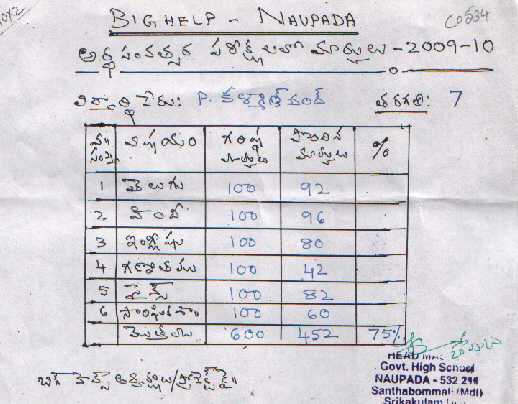 BIGHELP - NAUPADA
C0534
అర్థ సంవత్సర పరీక్షల మార్కులు - 2009-10
విద్యార్థి పేరు: P. కళ్యాణ్ చంద్ తరగతి: 7
వ॥ సంఖ్య విషయం గరిష్ఠ మార్కులు పొందిన మార్కులు %
1 తెలుగు 100 92
2 హిందీ 100 96
3 ఇంగ్లీషు 100 80
4 గణితము 100 42
5 సైన్స్ 100 82
6 సాంఘిక శా 100 60
మొత్తము 600 452 75%
HEAD MAS
Govt. High School
NAUPADA - 532 211
Santhabommali (Mdl)
Srikakulam
బిగ్ హెల్ప్